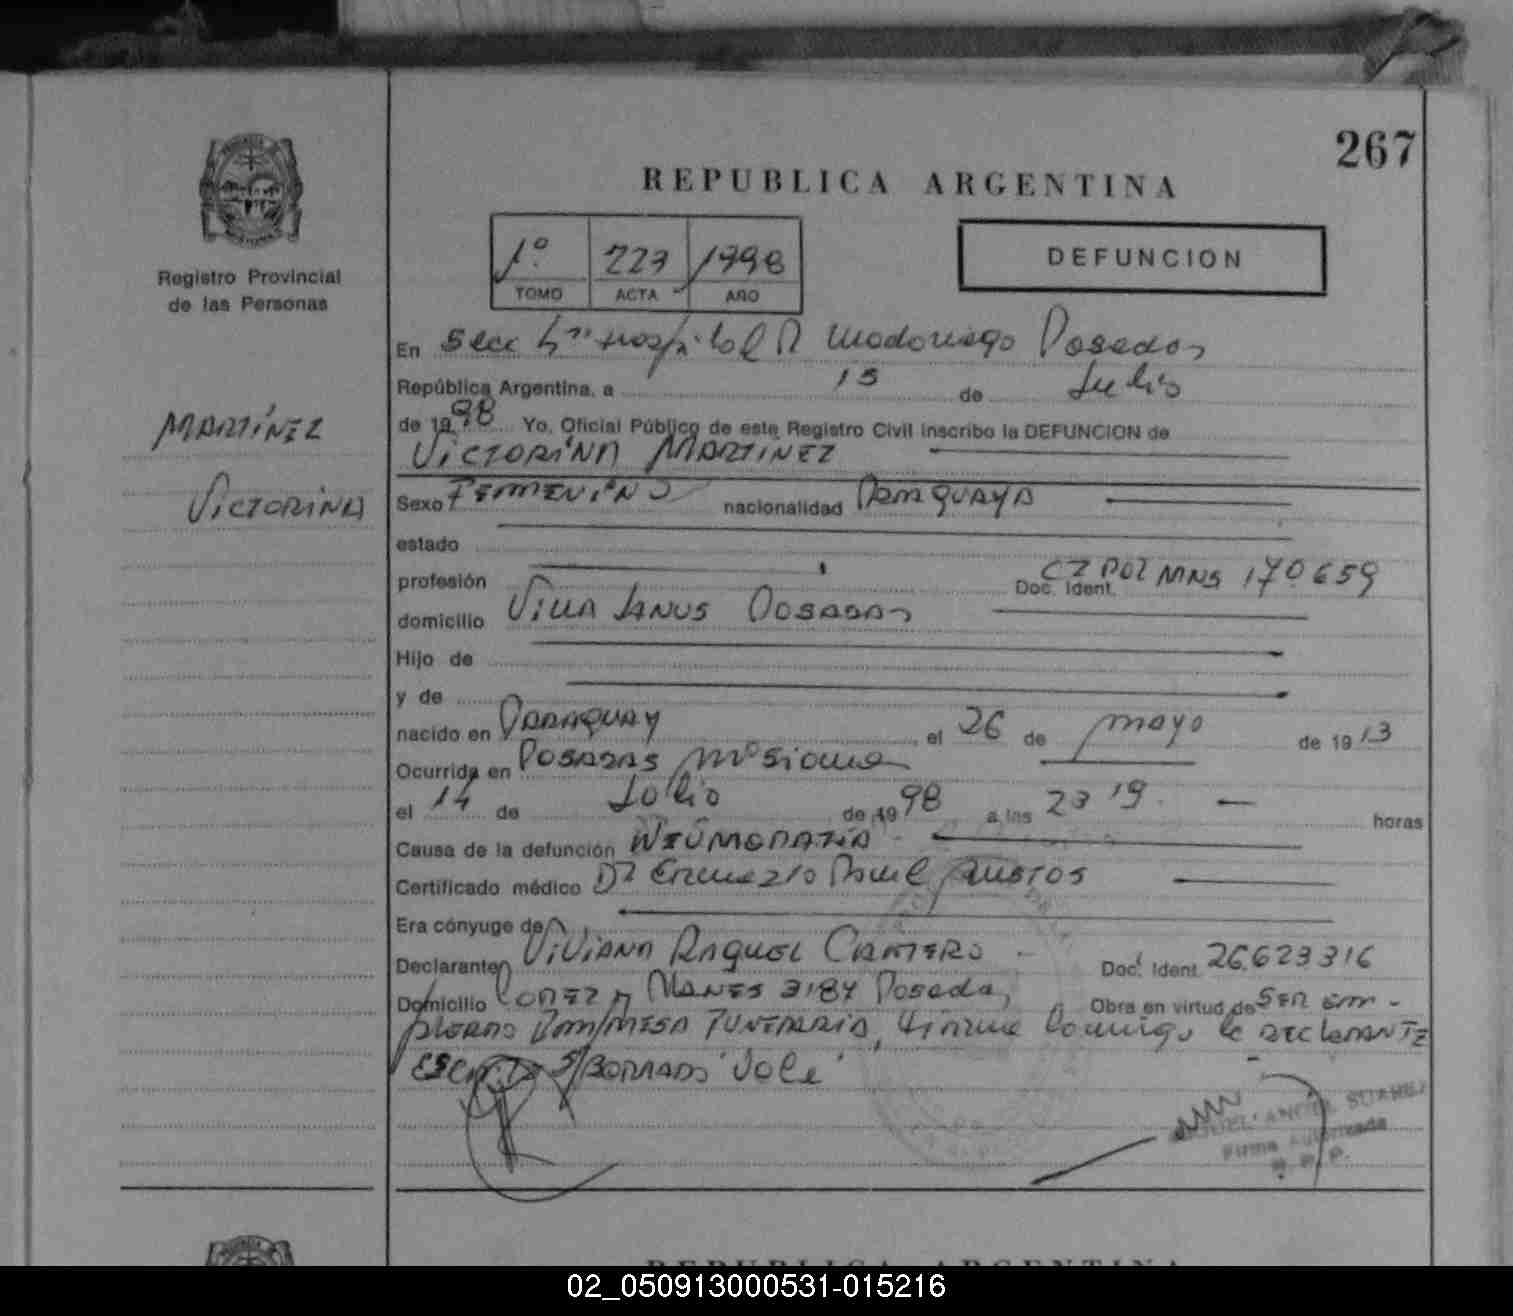 267
REPUBLICA ARGENTINA
1º 223 1998
TOMO ACTA AÑO
DEFUNCION
Registro Provincial
de las Personas
En Secc 5ta Hospital R Madariaga Posadas
República Argentina, a 15 de Julio
MARTÍNEZ
de 1998 Yo, Oficial Público de este Registro Civil inscribo la DEFUNCION de
VICTORINA MARTINEZ
VICTORINA
Sexo FEMENINO nacionalidad PARAGUAYA
estado
profesión Doc. Ident. CZ POL MNS 170.659
domicilio VILLA LANUS POSADAS
Hijo de
y de
nacido en PARAGUAY el 26 de mayo de 1913
Ocurrida en POSADAS Misiones
el 14 de Julio de 1998 a las 23 19. horas
Causa de la defunción NEUMOPATÍA
Certificado médico Dr
Era cónyuge de
Declarante VIVIANA RAQUEL CANTERO Doc. Ident. 26.623.316
Domicilio LOPEZ y PLANES 3184 Posadas Obra en virtud de SER EM-
PLEADA EMPRESA FUNERARIA, la DECLARANTE
S/BORRADO "Vale"
MIGUEL ANGEL SUAREZ
Firma Autorizada
R. P. P.
REPUBLICA ARGENTINA
02_050913000531-015216